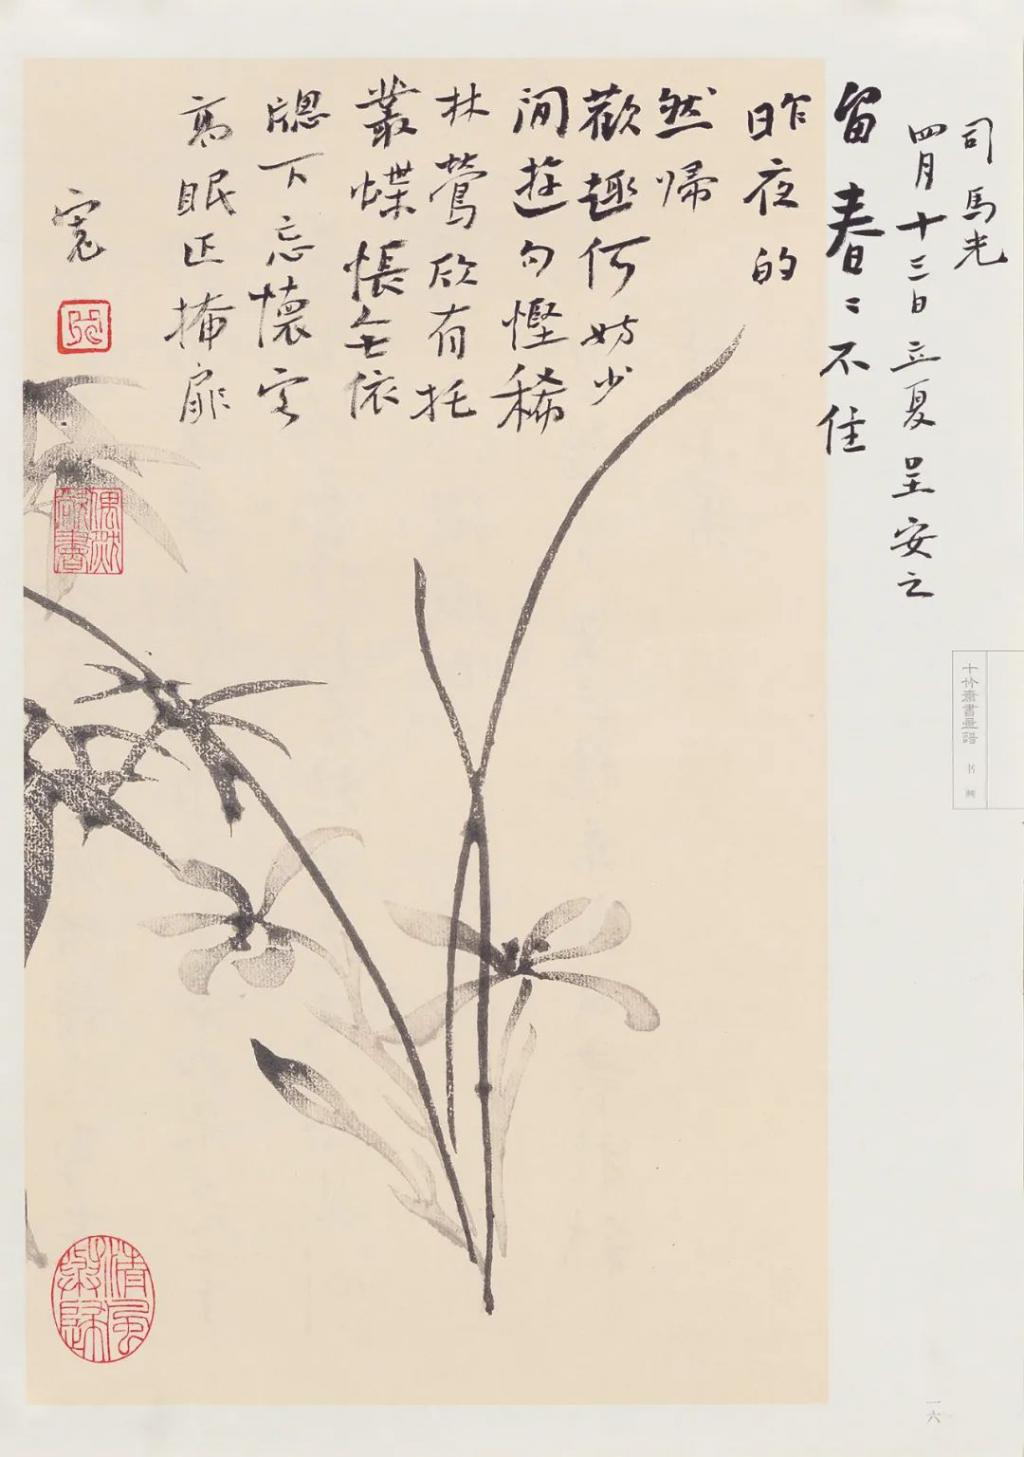 司馬光
四月十三日立夏呈安之
留春〻不住
昨夜的
然歸
歡趣何妨少
閒遊勿慳稀
林鶯欣有托
叢蝶悵無依
窗下忘懷客
高眠正掩扉
寬
偶然欲書
清風與歸
十竹齋書畫譜
一六